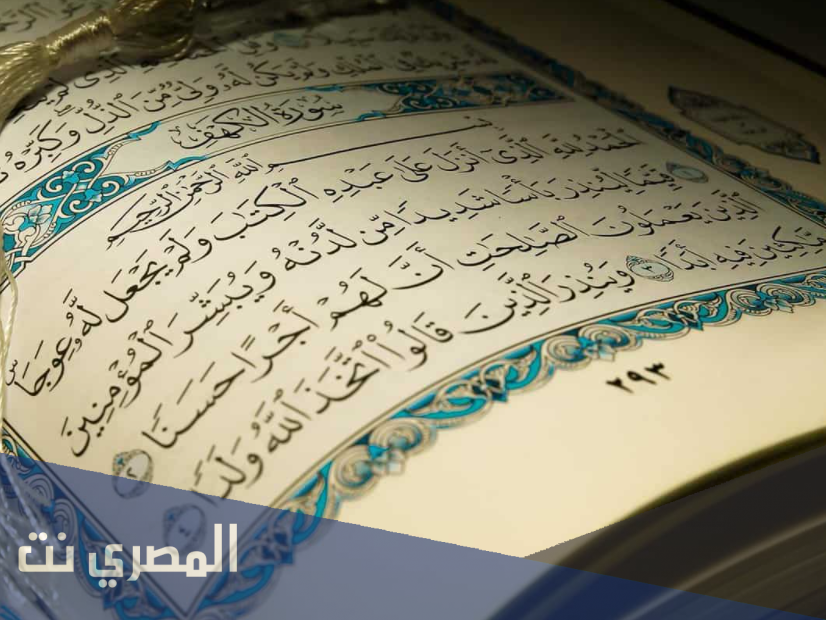 وَلَمْ يَكُن لَّهُۥ وَلِىٌّ مِّنَ ٱلذُّلِّ وَكَبِّرْهُ
سُورَةُ الكَهْفِ
بِسْمِ ٱللَّهِ ٱلرَّحْمَٰنِ ٱلرَّحِيمِ
ٱلْحَمْدُ لِلَّهِ ٱلَّذِىٓ أَنزَلَ عَلَىٰ عَبْدِهِ ٱلْكِتَٰبَ وَلَمْ يَجْعَل لَّهُۥ عِوَجَاۜ
قَيِّمًا لِّيُنذِرَ بَأْسًا شَدِيدًا مِّن لَّدُنْهُ وَيُبَشِّرَ ٱلْمُؤْمِنِينَ
ٱلَّذِينَ يَعْمَلُونَ ٱلصَّٰلِحَٰتِ أَنَّ لَهُمْ أَجْرًا حَسَنًا ٢
مَّٰكِثِينَ فِيهِ أَبَدًا ٣ وَيُنذِرَ ٱلَّذِينَ قَالُوا۟ ٱتَّخَذَ ٱللَّهُ وَلَدًا ٤
٢٩٣
المصري نت